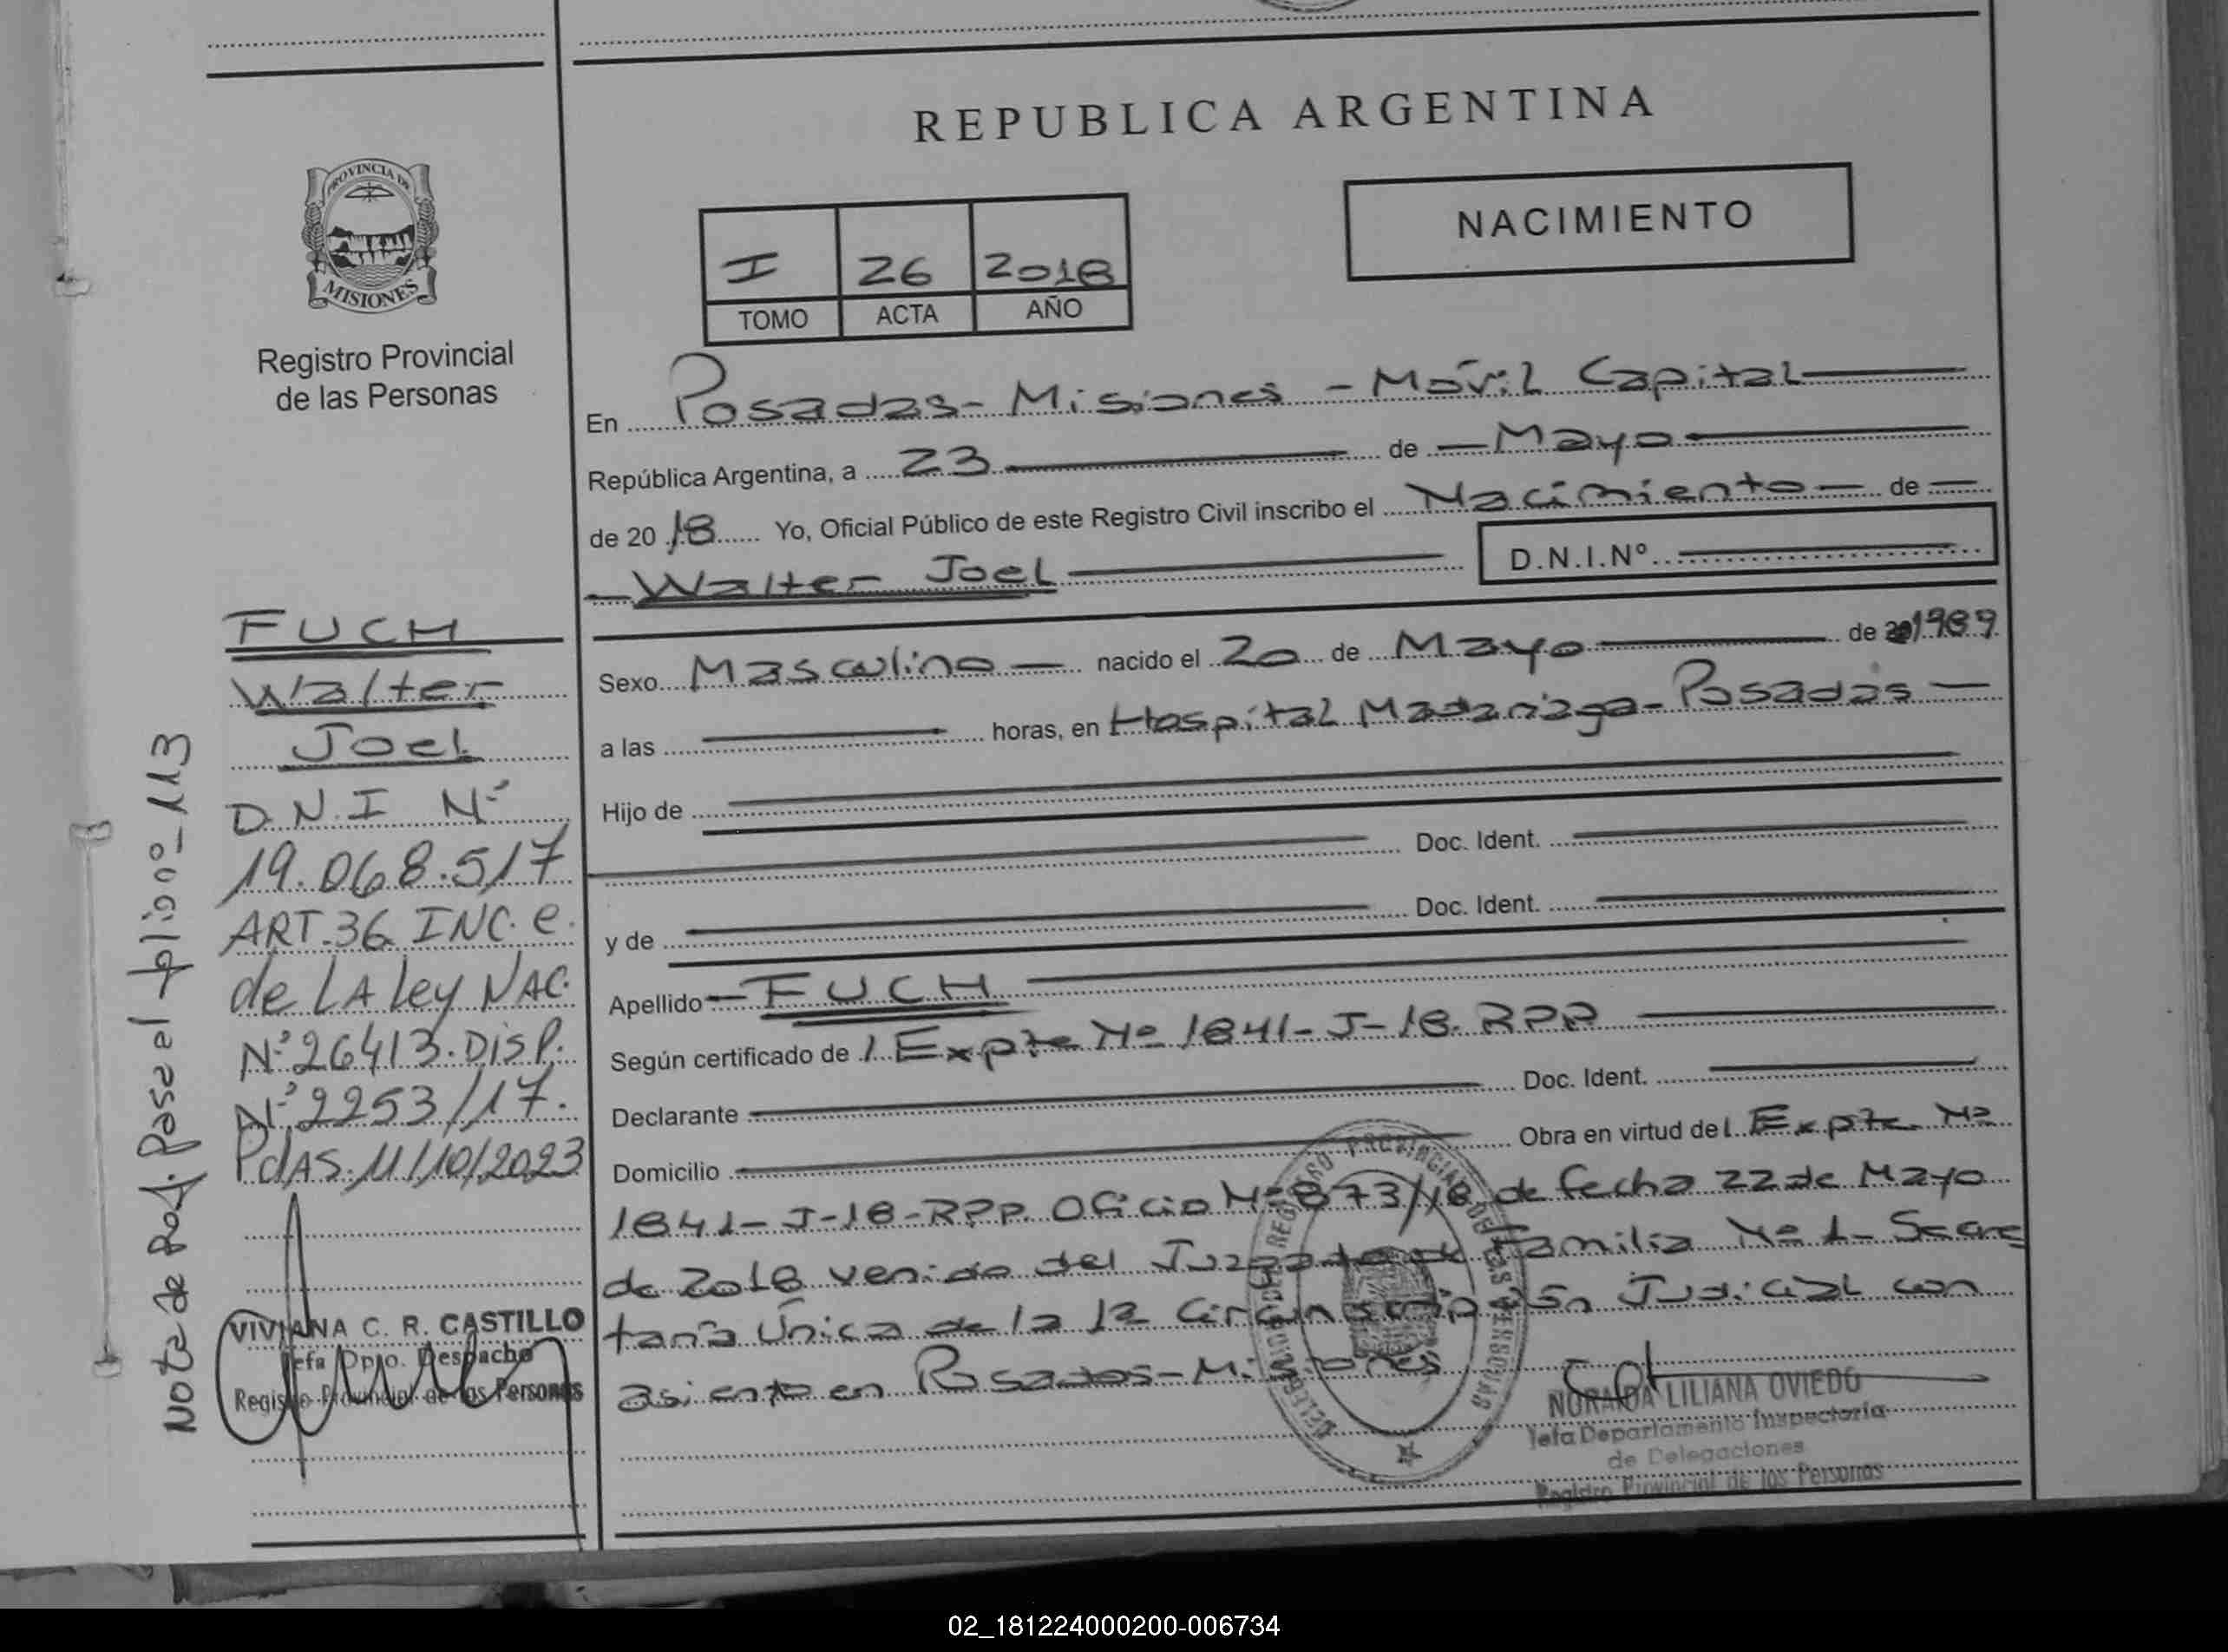 REPUBLICA ARGENTINA
NACIMIENTO
I 26 2018
TOMO ACTA AÑO
PROVINCIA DE
MISIONES
Registro Provincial
de las Personas
En Posadas - Misiones - Móvil Capital
República Argentina, a 23 de Mayo
de 2018 Yo, Oficial Público de este Registro Civil inscribo el Nacimiento de
Walter Joel D.N.I.Nº
Sexo Masculino nacido el 20 de Mayo de 1989
a las horas, en Hospital Madariaga - Posadas
Hijo de
Doc. Ident.
y de Doc. Ident.
Apellido FUCH
Según certificado de l Expte Nº 1841-J-18. RPP
Declarante Doc. Ident.
Domicilio Obra en virtud del Expte. Nº
1841-J-18-RPP. Oficio Nº 873/18 de fecha 22 de Mayo
de 2018 venido del Juzgado de Familia Nº 1- Secre
taria Única de la 1ª Circunscripción Judicial con
asiento en Posadas - Misiones
NORAIDA LILIANA OVIEDO
Jefa Departamento Inspectoría
de Delegaciones
Registro Provincial de las Personas
FUCH
Walter
Joel
D.N.I Nº
19.068.517
ART. 36 INC. e.
de LA Ley NAC.
Nº 26413. DISP.
Nº 2253/17.
PdAS. 11/10/2023
VIVIANA C. R. CASTILLO
Jefa Dpto. Despacho
Registro Provincial de las Personas
Nota de Ref. Pase el plioº 113
02_181224000200-006734